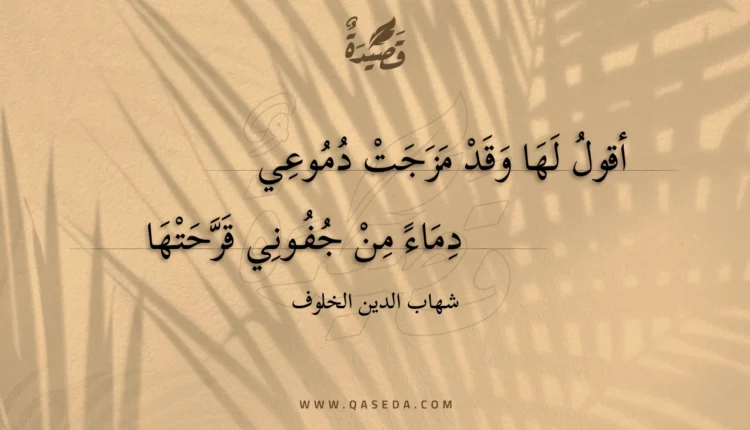 قَصِيدَةٌ
أقولُ لَهَا وَقَدْ مَزَجَتْ دُمُوعِي
دِمَاءً مِنْ جُفُونِي قَرَّحَتْهَا
شهاب الدين الخلوف
WWW.QASEDA.COM